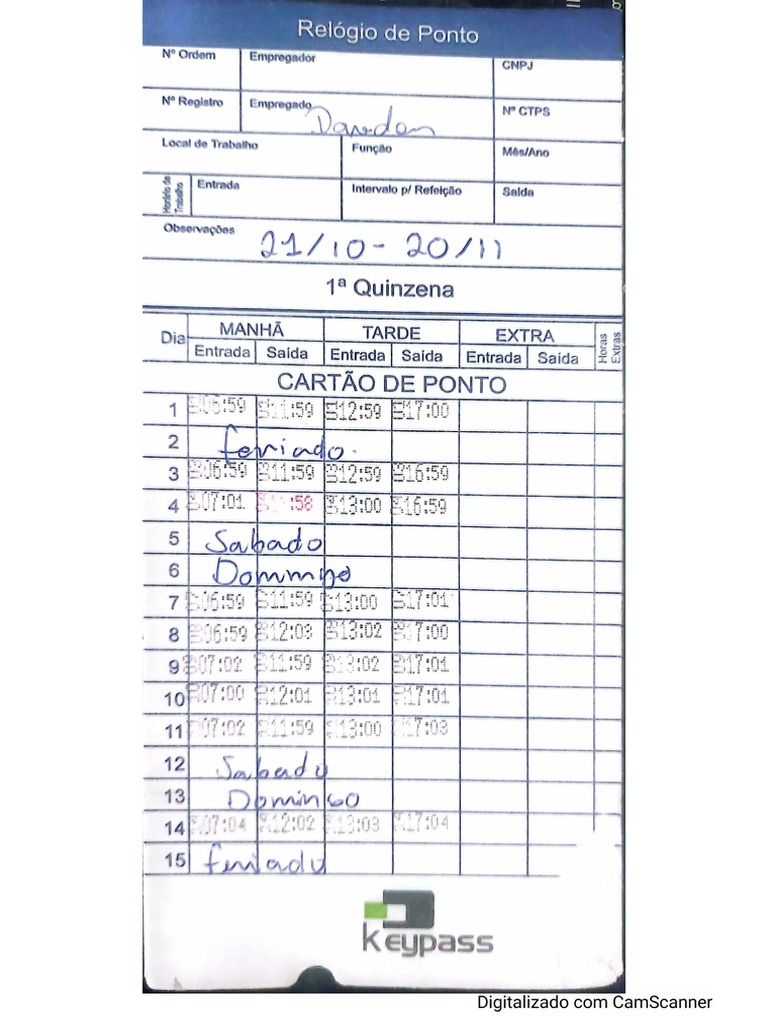 Relógio de Ponto
Nº Ordem Empregador CNPJ
Nº Registro Empregado Nº CTPS
Local de Trabalho Função Mês/Ano
Horário de Trabalho Entrada Intervalo p/ Refeição Saída
Observações 21/10 - 20/11
1ª Quinzena
Dia MANHÃ TARDE EXTRA Horas Extras
Entrada Saída Entrada Saída Entrada Saída
CARTÃO DE PONTO
1 06:59 11:59 12:59 17:00
2 feriado.
3 06:59 11:59 12:59 16:59
4 07:01 11:58 13:00 16:59
5 Sabado
6 Domingo
7 06:59 11:59 13:00 17:01
8 06:59 12:03 13:02 17:00
9 07:02 11:59 13:02 17:01
10 07:00 12:01 13:01 17:01
11 07:02 11:59 13:00 17:03
12 Sabado
13 Domingo
14 07:04 12:02 13:03 17:04
15 feriado
Keypass
Digitalizado com CamScanner